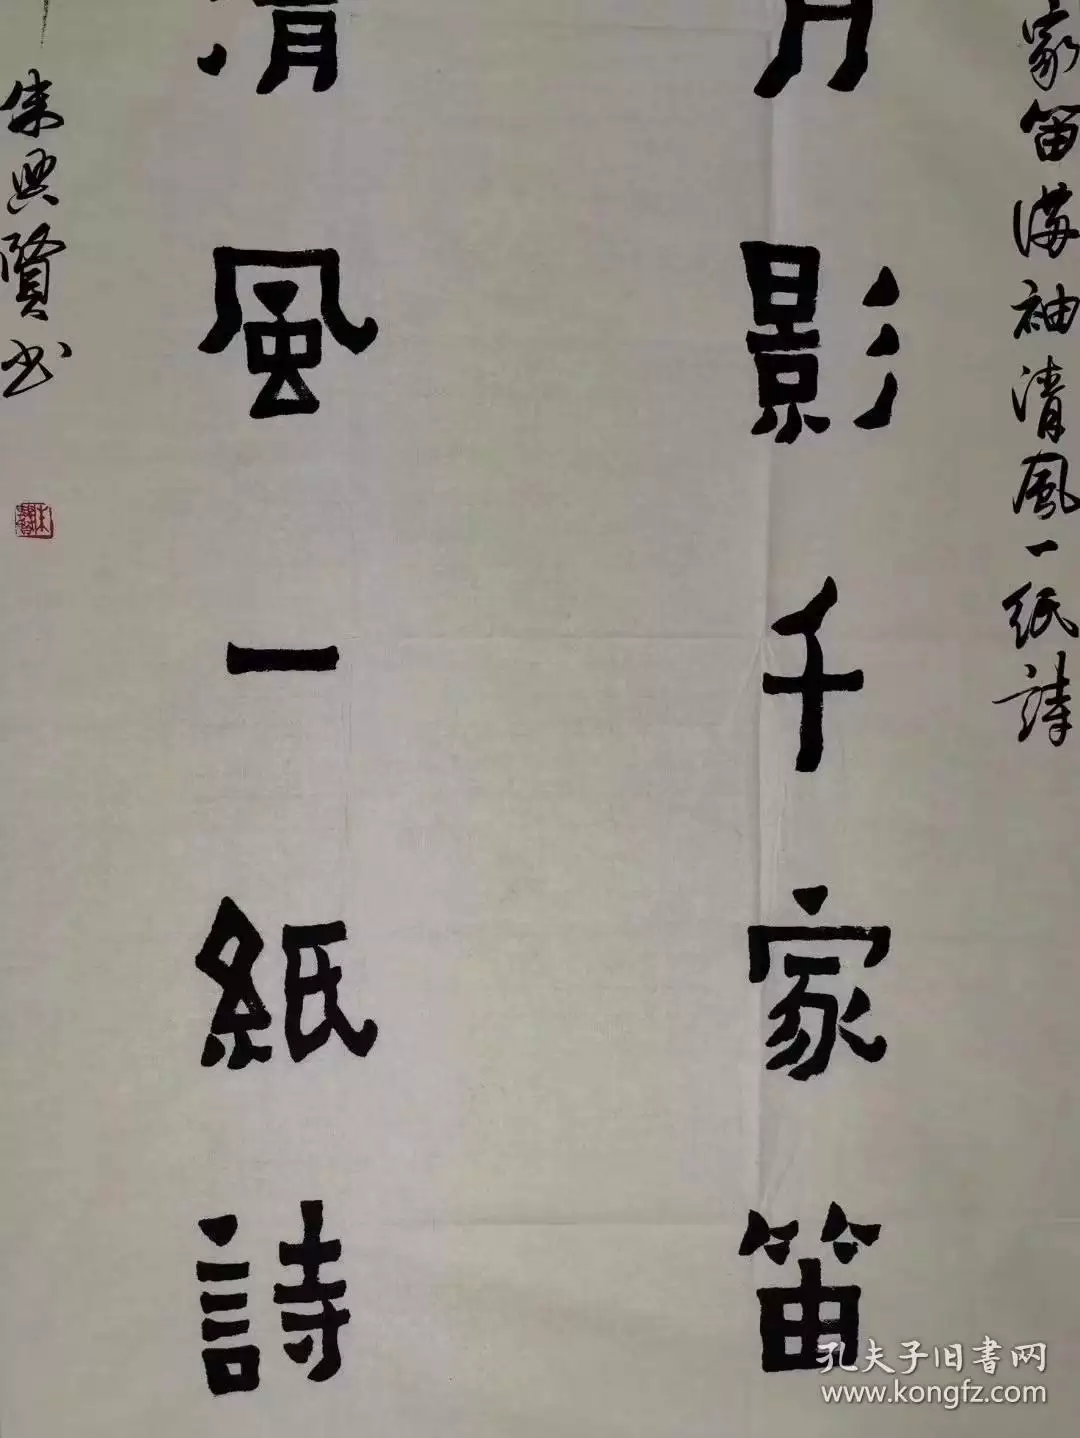 家笛满袖清风一纸诗
月影千家笛
清風一紙詩
朱興賢书
孔夫子旧書网
www.kongfz.com